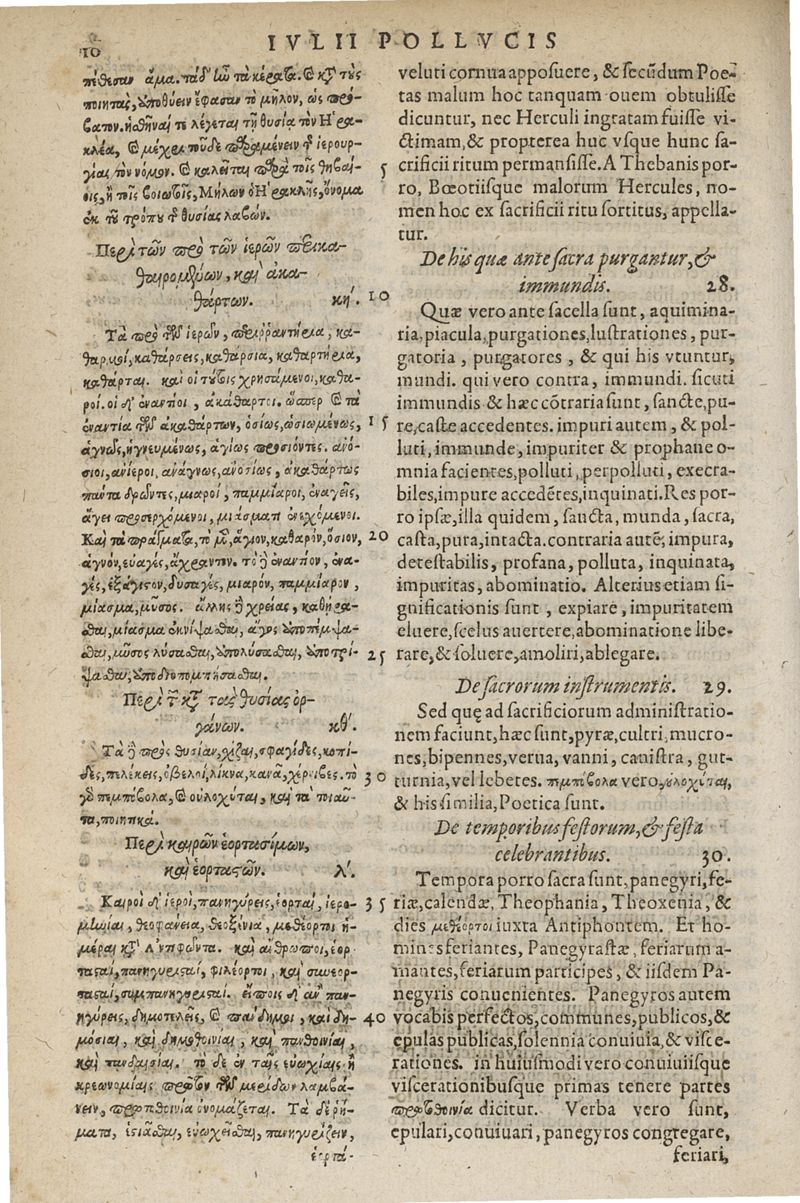 10
IVLII POLLVCIS
πέθεσαν ἅμα. τὰ δ' ὦ τὰ κέρατα. καὶ κατὰ τοὺς
ποιητὰς, ὑποθύειν ἔφασαν τὸ μῆλον, ὡς πρό-
βατον.
κλέα, καὶ μέχρι τοῦδε παραμένειν τ ἱερουρ-
γίας τὸν νόμον. καὶ καλεῖται παρὰ τοῖς θηβαί-
οις, ἢ τοῖς βοιωτοῖς, Μήλων ὁ Ηρακλῆς, ὄνομα
ἐκ τοῦ τρόπου τ θυσίας λαβών.
Περὶ τῶν πρὸ τῶν ἱερῶν
καὶ ἀκα-
θάρτων. κή.
Τὰ πρὸ τῶν ἱερῶν, περιῤῥαντήρια, κα-
θαρμοί, καθάρσεις, καθάρσια, καθαρτήρια,
καθάρται. καὶ οἱ τούτοις χρησάμενοι, καθα-
ροί. οἱ δ' ἐναντίοι, ἀκάθαρτοι. ὥσπερ καὶ τὰ
ἐναντία τῶν ἀκαθάρτων, ὁσίως, ὡσιωμένως,
ἁγνῶς, ἡγνευμένως, ἁγίως προσιόντες. ἀνό-
σιοι, ἀνίεροι, ἀνάγνως, ἀνοσίως, ἀκαθάρτως
πάντα δρῶντες, μιαροί, παμμίαροι, ἐναγεῖς,
ἄγει προσερχόμενοι, μιάσματι ἐνεχόμενοι.
Καὶ τὰ πράγματα, τὸ μὲν, ἅγιον, καθαρόν, ὅσιον,
ἁγνόν, εὐαγές, ἄχραντον. τὸ δὲ ἐναντίον, ἐνα-
γές, ἐξάγιστον, δυσαγές, μιαρόν, παμμίαρον,
μίασμα, μύσος. ἄλλης δὲ χρείας, καθήρα-
σθαι, μίασμα ἐκνίψασθαι, ἄγος ἀποπέμψα-
σθαι, μῦσος λύσασθαι, ἀπολύσασθαι, ἀποτρί-
ψασθαι, ἀποδιοπομπήσασθαι.
Περὶ τῶν κατὰ τὰς θυσίας ὀρ-
γάνων. κθ'.
Τὰ δὲ πρὸς θυσίαν, χίζαι, σφαγίδες, κοπί-
δες, πελέκεις, ὀβελοὶ, λίκνα, κανᾶ, χέρνιβες. τὸ
γὸ πεμπώβολα, καὶ οὐλοχύται, καὶ τὰ τοιαῦ-
τα, ποιητικά.
Περὶ καιρῶν ἑορτασίμων,
καὶ ἑορταστῶν. λ'.
Καιροὶ δ' ἱεροὶ, πανηγύρεις, ἑορταὶ, ἱερο-
μηνίαι, θεοφάνεια, θεοξένια, μεθέορτοι ἡ-
μέραι κατ' Αντιφῶντα. καὶ ἄνθρωποι, ἑορ-
τασταὶ, πανηγυρισταὶ, φιλέορτοι, καὶ συνεορ-
τασταὶ, συμπανηγυρισταὶ. εἴποις δ' ἂν παν-
ηγύρεις, δημοτελεῖς, καὶ πανδήμοι, καὶ δη-
μόσιαι, καὶ δημοθοινίαι, καὶ πανθοινίαι,
καὶ πανδαισίαι. τὸ δὲ ἐν ταῖς εὐωχίαις ἢ
κρεωνομίαις πρῶτον τῶν μερίδων λαμβά-
νειν, προπθοινία ὀνομάζεται. Τὰ δὲ ῥή-
ματα, ἑστιᾶσθαι, εὐωχεῖσθαι, πανηγυρίζειν,
ἑορτά-
veluti cornua apposuere, & secūdum Poe-
tas malum hoc tanquam ouem obtulisse
dicuntur, nec Herculi ingratam fuisse vi-
ctimam, & propterea huc vsque hunc sa-
5 crificii ritum permansisse. A Thebanis por-
ro, Bœotiisque malorum Hercules, no-
men hoc ex sacrificii ritu sortitus, appella-
tur.
De his quæ ante sacra purgantur, &
immundis. 28.
10 Quæ vero ante sacella sunt, aquimina-
ria, piacula, purgationes, lustrationes, pur-
gatoria, purgatores, & qui his vtuntur,
mundi. qui vero contra, immundi. sicuti
immundis & hæc cōtraria sunt, sancte, pu-
15 re, caste accedentes. impuri autem, & pol-
luti, immunde, impuriter & prophane o-
mnia facientes, polluti, perpolluti, execra-
biles, impure accedētes, inquinati. Res por-
ro ipsæ, illa quidem, sancta, munda, sacra,
20 casta, pura, intacta. contraria autē, impura,
detestabilis, profana, polluta, inquinata,
impuritas, abominatio. Alterius etiam si-
gnificationis sunt, expiare, impuritatem
eluere, scelus auertere, abominatione libe-
25 rare, & soluere, amoliri, ablegare.
De sacrorum instrumentis. 29.
Sed quę ad sacrificiorum administratio-
nem faciunt, hæc sunt, pyræ, cultri, mucro-
nes, bipennes, verua, vanni, canistra, gut-
30 turnia, vel lebetes. πεμπώβολα vero, οὐλοχύται,
& his similia, Poetica sunt.
De temporibus festorum, & festa
celebrantibus. 30.
Tempora porro sacra sunt, panegyri, fe-
35 riæ, calendæ, Theophania, Theoxenia, &
dies μεθέορτοι iuxta Antiphontem. Et ho-
mines feriantes, Panegyrastæ, feriarum a-
mantes, feriarum participes, & iisdem Pa-
negyris conuenientes. Panegyros autem
40 vocabis perfectos, communes, publicos, &
epulas publicas, solennia conuiuia, & visce-
rationes. in huiusmodi vero conuiuiisque
viscerationibusque primas tenere partes
προτθοινία dicitur. Verba vero sunt,
epulari, conuiuari, panegyros congregare,
feriari,